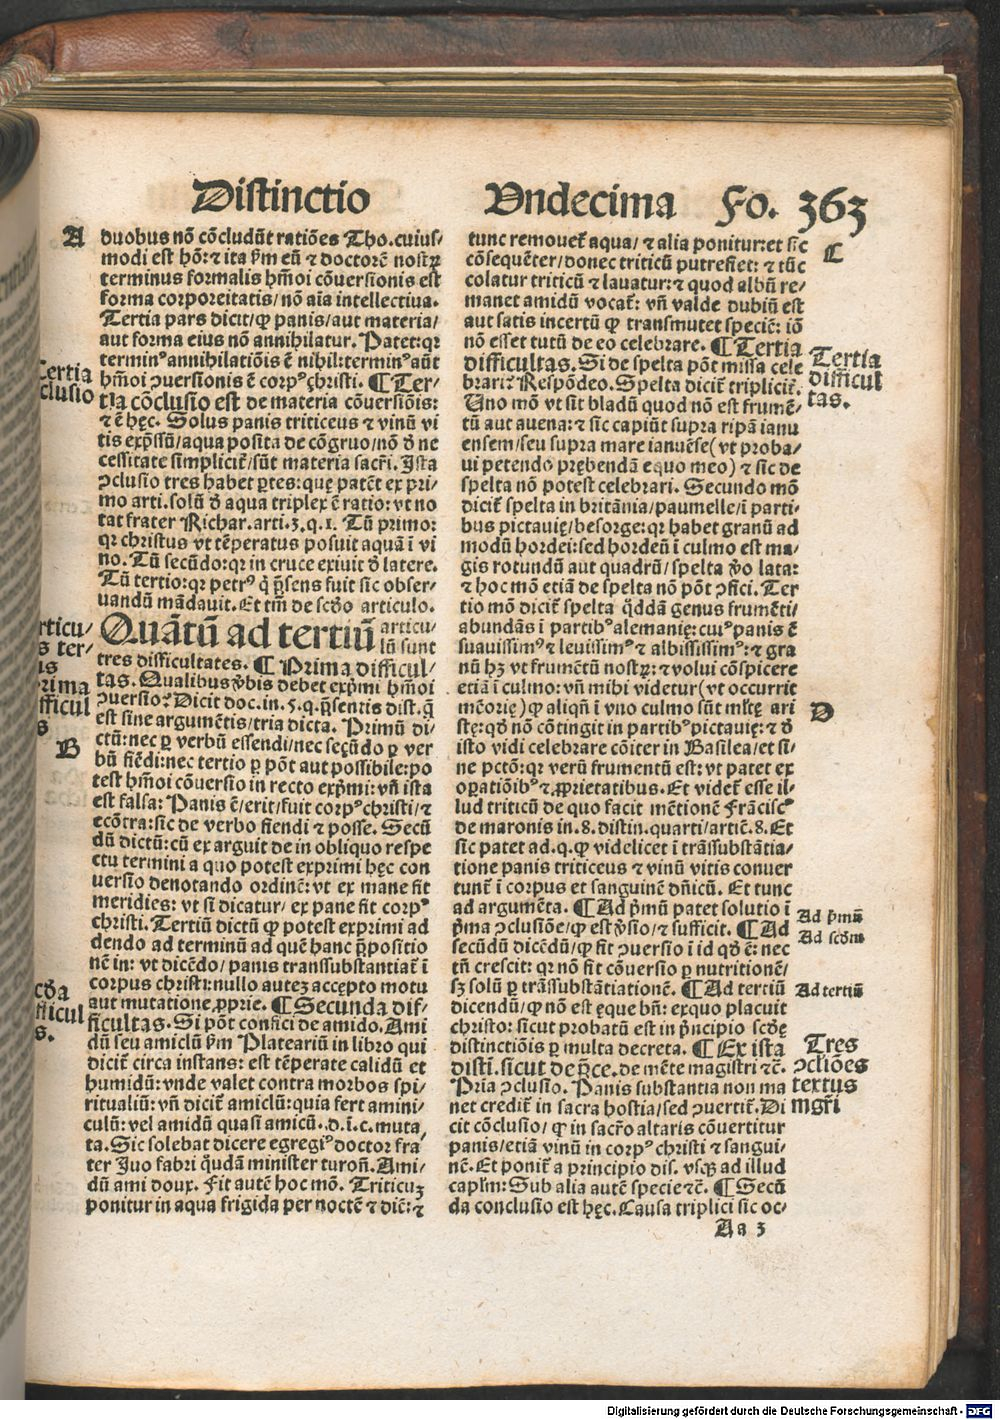 Distinctio
Vndecima Fo. 363
A
duobus nõ cõcludũt ratiões Tho. cuius/
modi est hõ: ⁊ ita ẜm eũ ⁊ doctorẽ nostꝝ
terminus formalis hm̃oi cõuersionis est
forma corporeitatis/ nõ aĩa intellectiua.
Tertia pars dicit/ ꝙ panis/aut materia/
aut forma eius nõ annihilatur. Patet: qꝛ
terminꝰ annihilatiõis ẽ nihil: terminꝰ aũt
hm̃oi ↄuersionis ẽ corpꝰ christi. ¶ Ter/
tia cõclusio est de materia cõuersiõis:
⁊ ẽ hęc. Solus panis triticeus ⁊ vinũ vi
tis exp̃ssũ/aqua posita de cõgruo/nõ ð ne
cessitate simplicit̃/sũt materia sacr̃i. Ista
ↄclusio tres habet ꝑtes: quę patẽt ex pri/
mo arti. solũ ð aqua triplex ẽ ratio: vt no
tat frater Richar. arti. 3. q. 1. Tũ primo:
qꝛ christus vt tẽperatus posuit aquã ĩ vi
no. Tũ secũdo: qꝛ in cruce exiuit ð latere.
Tũ tertio: qꝛ petrꝰ q̃ p̃sens fuit sic obser/
uandũ mãdauit. Et tm̃ de scðo articulo.
Quãtũ ad tertiũ articu/
lũ sunt
tres difficultates. ¶ Prima difficul/
tas. Qualibus v̾bis debet exp̃mi hm̃oi
ↄuersio? Dicit doc. in. 5. q. p̃sentis dist. q̃
est sine argumẽtis/tria dicta. Primũ di/
ctũ: nec ꝑ verbũ essendi/nec secũdo ꝑ ver
bũ fiẽdi: nec tertio ꝑ põt aut possibile: po
test hm̃oi cõuersio in recto exp̃mi: vñ ista
est falsa: Panis ẽ/erit/fuit corpꝰ christi/⁊
ecõtra: sic de verbo fiendi ⁊ posse. Secũ
dũ dictũ: cũ ex arguit de in obliquo respe
ctu termini a quo potest exprimi hęc con
uersio denotando ordinẽ: vt ex mane fit
meridies: vt si dicatur/ ex pane fit corpꝰ
christi. Tertiũ dictũ ꝙ potest exprimi ad
dendo ad terminũ ad quẽ hanc p̃positio
nẽ in: vt dicẽdo/ panis transsubstantiat̃ ĩ
corpus christi: nullo auteʒ accępto motu
aut mutatione ꝓprie. ¶ Secunda dif/
ficultas. Si põt confici de amido. Ami
dũ seu amiclũ ẜm Plateariũ in libro qui
dicit̃ circa instans: est tẽperate calidũ et
humidũ: vnde valet contra morbos spi/
ritualiũ: vñ dicit̃ amiclũ: quia fert amini/
culũ: vel amidũ quasi amicũ. .d. ĩ. c. muta,
ta. Sic solebat dicere egregiꝰ doctor fra/
ter Iuo fabri q̃dã minister turoñ. Ami/
dũ ami doux. Fit autẽ hoc mõ. Triticuʒ
ponitur in aqua frigida per noctẽ ⁊ diẽ: ⁊
tunc remouet̃ aqua/ ⁊ alia ponitur: et sic
cõsequẽter/ donec triticũ putrefiet: ⁊ tũc
colatur triticũ ⁊ lauatur: ⁊ quod albũ re/
manet amidũ vocat̃: vñ valde dubiũ est
aut satis incertũ ꝙ transmutet speciẽ: iõ
nõ esset tutũ de eo celebrare. ¶ Tertia
difficultas. Si de spelta põt missa cele
brari? Respõdeo. Spelta dicit̃ triplicit̃.
Uno mõ vt sit bladũ quod nõ est frumẽ/
tũ aut auena: ⁊ sic capiũt supra ripã ianu
ensem/seu supra mare ianuẽse (vt proba/
ui petendo prębendã equo meo) ⁊ sic de
spelta nõ potest celebrari. Secundo mõ
dicit̃ spelta in britãnia/paumelle/ĩ parti/
bus pictauię/besorge: qꝛ habet granũ ad
modũ hordei: sed hordeũ ĩ culmo est ma/
gis rotundũ aut quadrũ/ spelta v̾o lata:
⁊ hoc mõ etiã de spelta nõ põt ↄfici. Ter
tio mõ dicit̃ spelta q̃ddã genus frumẽti/
abundãs ĩ partibꝰ alemanię: cuiꝰ panis ẽ
suauissimꝰ ⁊ leuissimꝰ ⁊ albississimꝰ: ⁊ gra
nũ hʒ vt frumẽtũ nostꝝ: ⁊ volui cõspicere
etiã ĩ culmo: vñ mihi videtur (vt occurrit
mẽorię) ꝙ aliqñ ĩ vno culmo sũt ml̃tę ari
stę: qð nõ cõtingit in partibꝰ pictauię: ⁊ ð
isto vidi celebrare cõiter in Basilea/et si/
ne pctõ: qꝛ verũ frumentũ est: vt patet ex
oꝑatiõibꝰ ⁊ ꝓprietatibus. Et videt̃ esse il/
lud triticũ de quo facit mẽtionẽ Frãciscꝰ
de maronis in. 8. distin. quarti/artic̃. 8. Et
sic patet ad. q. ꝙ videlicet ĩ trãssubstãtia/
tione panis triticeus ⁊ vinũ vitis conuer
tunt̃ ĩ corpus et sanguinẽ dñicũ. Et tunc
ad argumẽta. ¶ Ad p̃mũ patet solutio ĩ
p̃ma ↄclusiõe/ꝙ est v̾sio/⁊ sufficit. ¶ Ad
secũdũ dicẽdũ/ꝙ fit ↄuersio ĩ id qð ẽ: nec
tñ crescit: qꝛ nõ fit cõuersio ꝑ nutritionẽ/
sʒ solũ ꝑ trãssubstãtiationẽ. ¶ Ad tertiũ
dicendũ/ꝙ nõ est ęque bñ: exquo placuit
christo: sicut probatũ est in p̃ncipio scðę
distinctiõis ꝑ multa decreta. ¶ Ex ista
disti. sicut de p̃ce. de mẽte magistri ⁊c̃.
Pria ↄclusio. Panis substantia non ma
net credit̃ in sacra hostia/sed ↄuertit̃. Di
cit cõclusio/ ꝙ in sacr̃o altaris cõuertitur
panis/etiã vinũ in corpꝰ christi ⁊ sangui/
nẽ. Et ponit̃ a principio dis. vsqʒ ad illud
capl̃m: Sub alia autẽ specie ⁊c̃. ¶ Secũ
da conclusio est hęc. Causa triplici sic oc/
Aa 3
Tertia
clusio
B
C
Tertia
difficul
tas.
D
Ad p̃mũ
Ad scðm
Ad tertiũ
Tres
ↄcliões
textus
mgr̃i
Digitalisierung gefördert durch die Deutsche Forschungsgemeinschaft - DFG